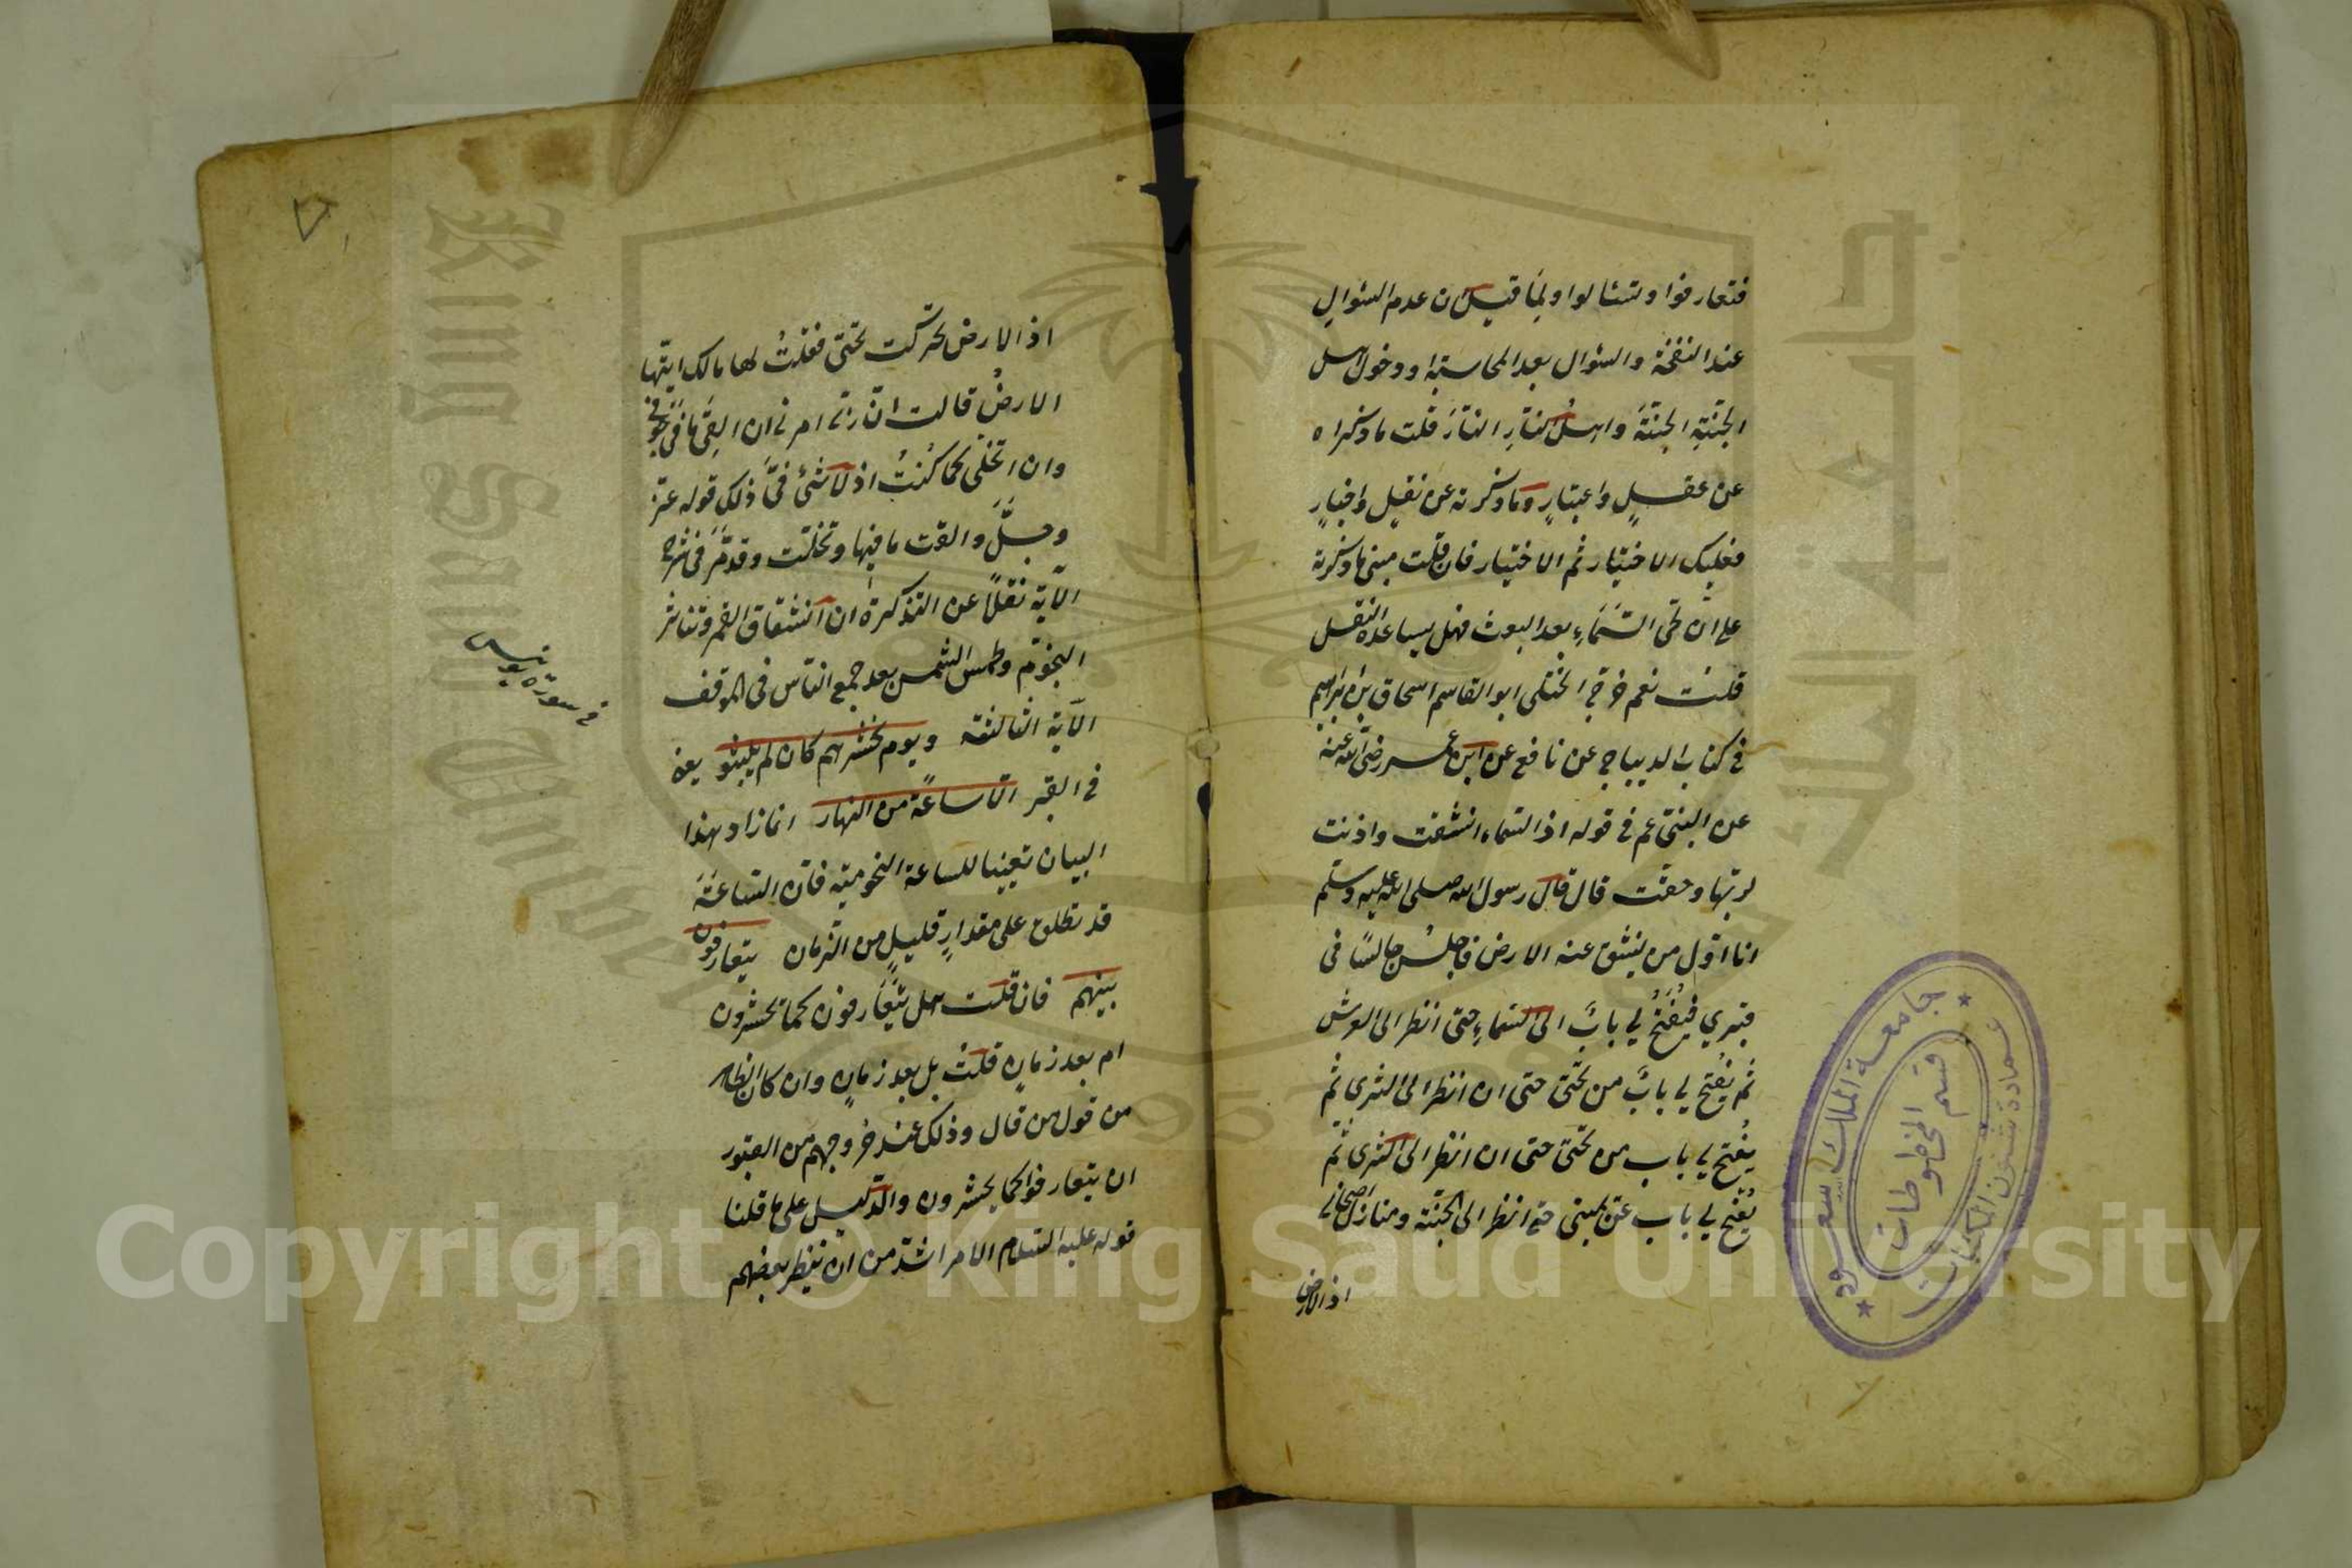 فتعارفوا وتسئالوا ولما قيل ان عدم السئوال
عند النفخة والسئوال بعد المحاسبة ودخول اهل
الجنّةِ الجنّةَ واهلُ النّارِ النّارَ قلت ما ذكراه
عن عقلٍ واعتبارٍ وما ذكرته عن نقلٍ واخبارٍ
فعليك الاختيار ثم الاختيار فان قلت مبنى ما ذكرته
على انّ طىّ السَّمَاءِ بعد البعث فهل يساعده النقل
قلتُ نعم خرّج الختلى ابو القاسم اسحاق بن ابراهيم
فى كتاب الديباج عن نافع عن ابن عمر رضى الله عنه
عن النبىّ عم فى قوله اذا السماء انشقت واذنت
لربّها وحقّت قال قال رسول الله صلى الله عليه وسلّم
انا اوّل من ينشق عنه الارض فاجلسُ جالسًا فى
قبري فيُفْتَحُ لي بابٌ الى السّماءِ حتى انظر الى العرش
ثم يُفتح لي بابٌ من تحتى حتى ان انظر الى الثرى ثم
يُفتح لي باب من تحتى حتى ان انظر الى الثرى ثم
يُفتح لي باب عن يمينى حتى انظر الى الجنّة ومنازل اصحابى
اذ الارض
اذ الارض تحرّكت تحتى فقلتُ لها مالك ايّتها
الارضُ قالت انّ ربّى امرنى ان القِىَ ما فى جوفى
وان اتخلّى كما كُنتُ اذ لا شئ فىّ ذلك قوله عزّ
وجلَّ والقت ما فيها وتخلّت وقد مرّ فى شرح
الآية نقلًا عن التذكرة ان انشقاق القمر وتناثر
النجوم وطمس الشمس بعد جمع النّاس فى الموقف
الآية الثالثة ويوم نحشرهم كان لم يلبثو يعنى
فى القبر الّا ساعةً من النهار انما زاد هذا
البيان تعيينا للساعة النجومية فانّ السّاعَةَ
قد تطلق على مقدارٍ قليلٍ من الزّمان يتعارفون
بينهم فان قلت هل يتعارفون كما تحشرون
ام بعد زمانٍ قلتُ بل بعد زمانٍ وان كان الظاهر
من قول من قال وذلك عند خروجهم من القبور
ان يتعارفوا كما يحشرون والدّليل على ما قلنا
قوله عليه السّلام الامر اشدّ من ان ينظر بعضهم
فى سورة يونس
جامعة الملك سعود
قسم المخطوطات
عمادة شئون المكتبات
King Saud University
1957
Copyright © King Saud University